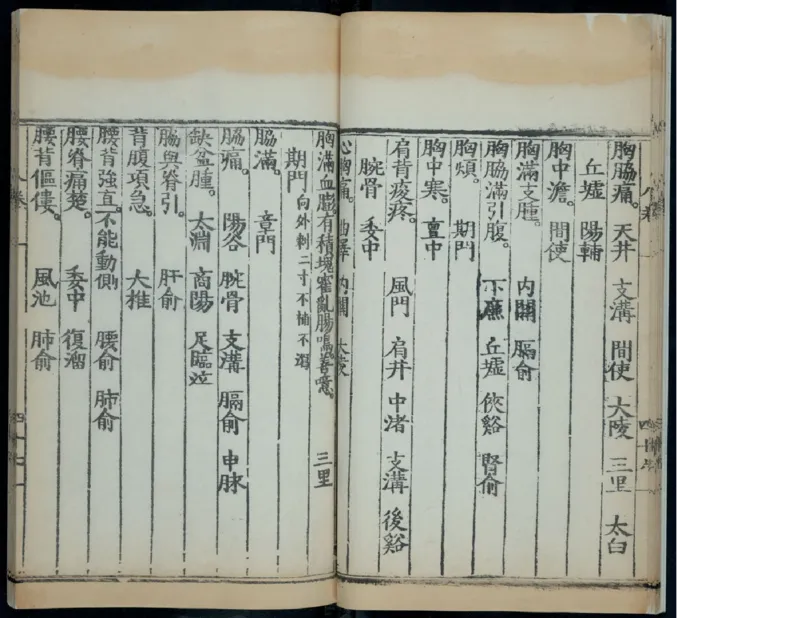 胸脇痛。天井　支溝　間使　大陵　三里　太白
丘墟　陽輔
胸中澹。間使
胸滿支腫。内關　膈俞
胸脇滿引腹。下廉　丘墟　俠谿　腎俞
胸煩。期門
胸中寒。亶中
肩背痠疼。風門　肩井　中渚　支溝　後谿
腕骨　委中
心胸痛。曲澤　内關　大陵
胸滿血膨有積塊霍亂腸鳴善噫。三里
期門向外刺二寸不補不瀉
脇滿。章門
脇痛。陽谷　腕骨　支溝　膈俞　申脉
缺盆腫。太淵　商陽　足臨泣
脇與脊引。肝俞
背腹項急。大推
腰背強直。不能動側　腰俞　肺俞
腰脊痛楚。委中　復溜
腰背傴僂。風池　肺俞